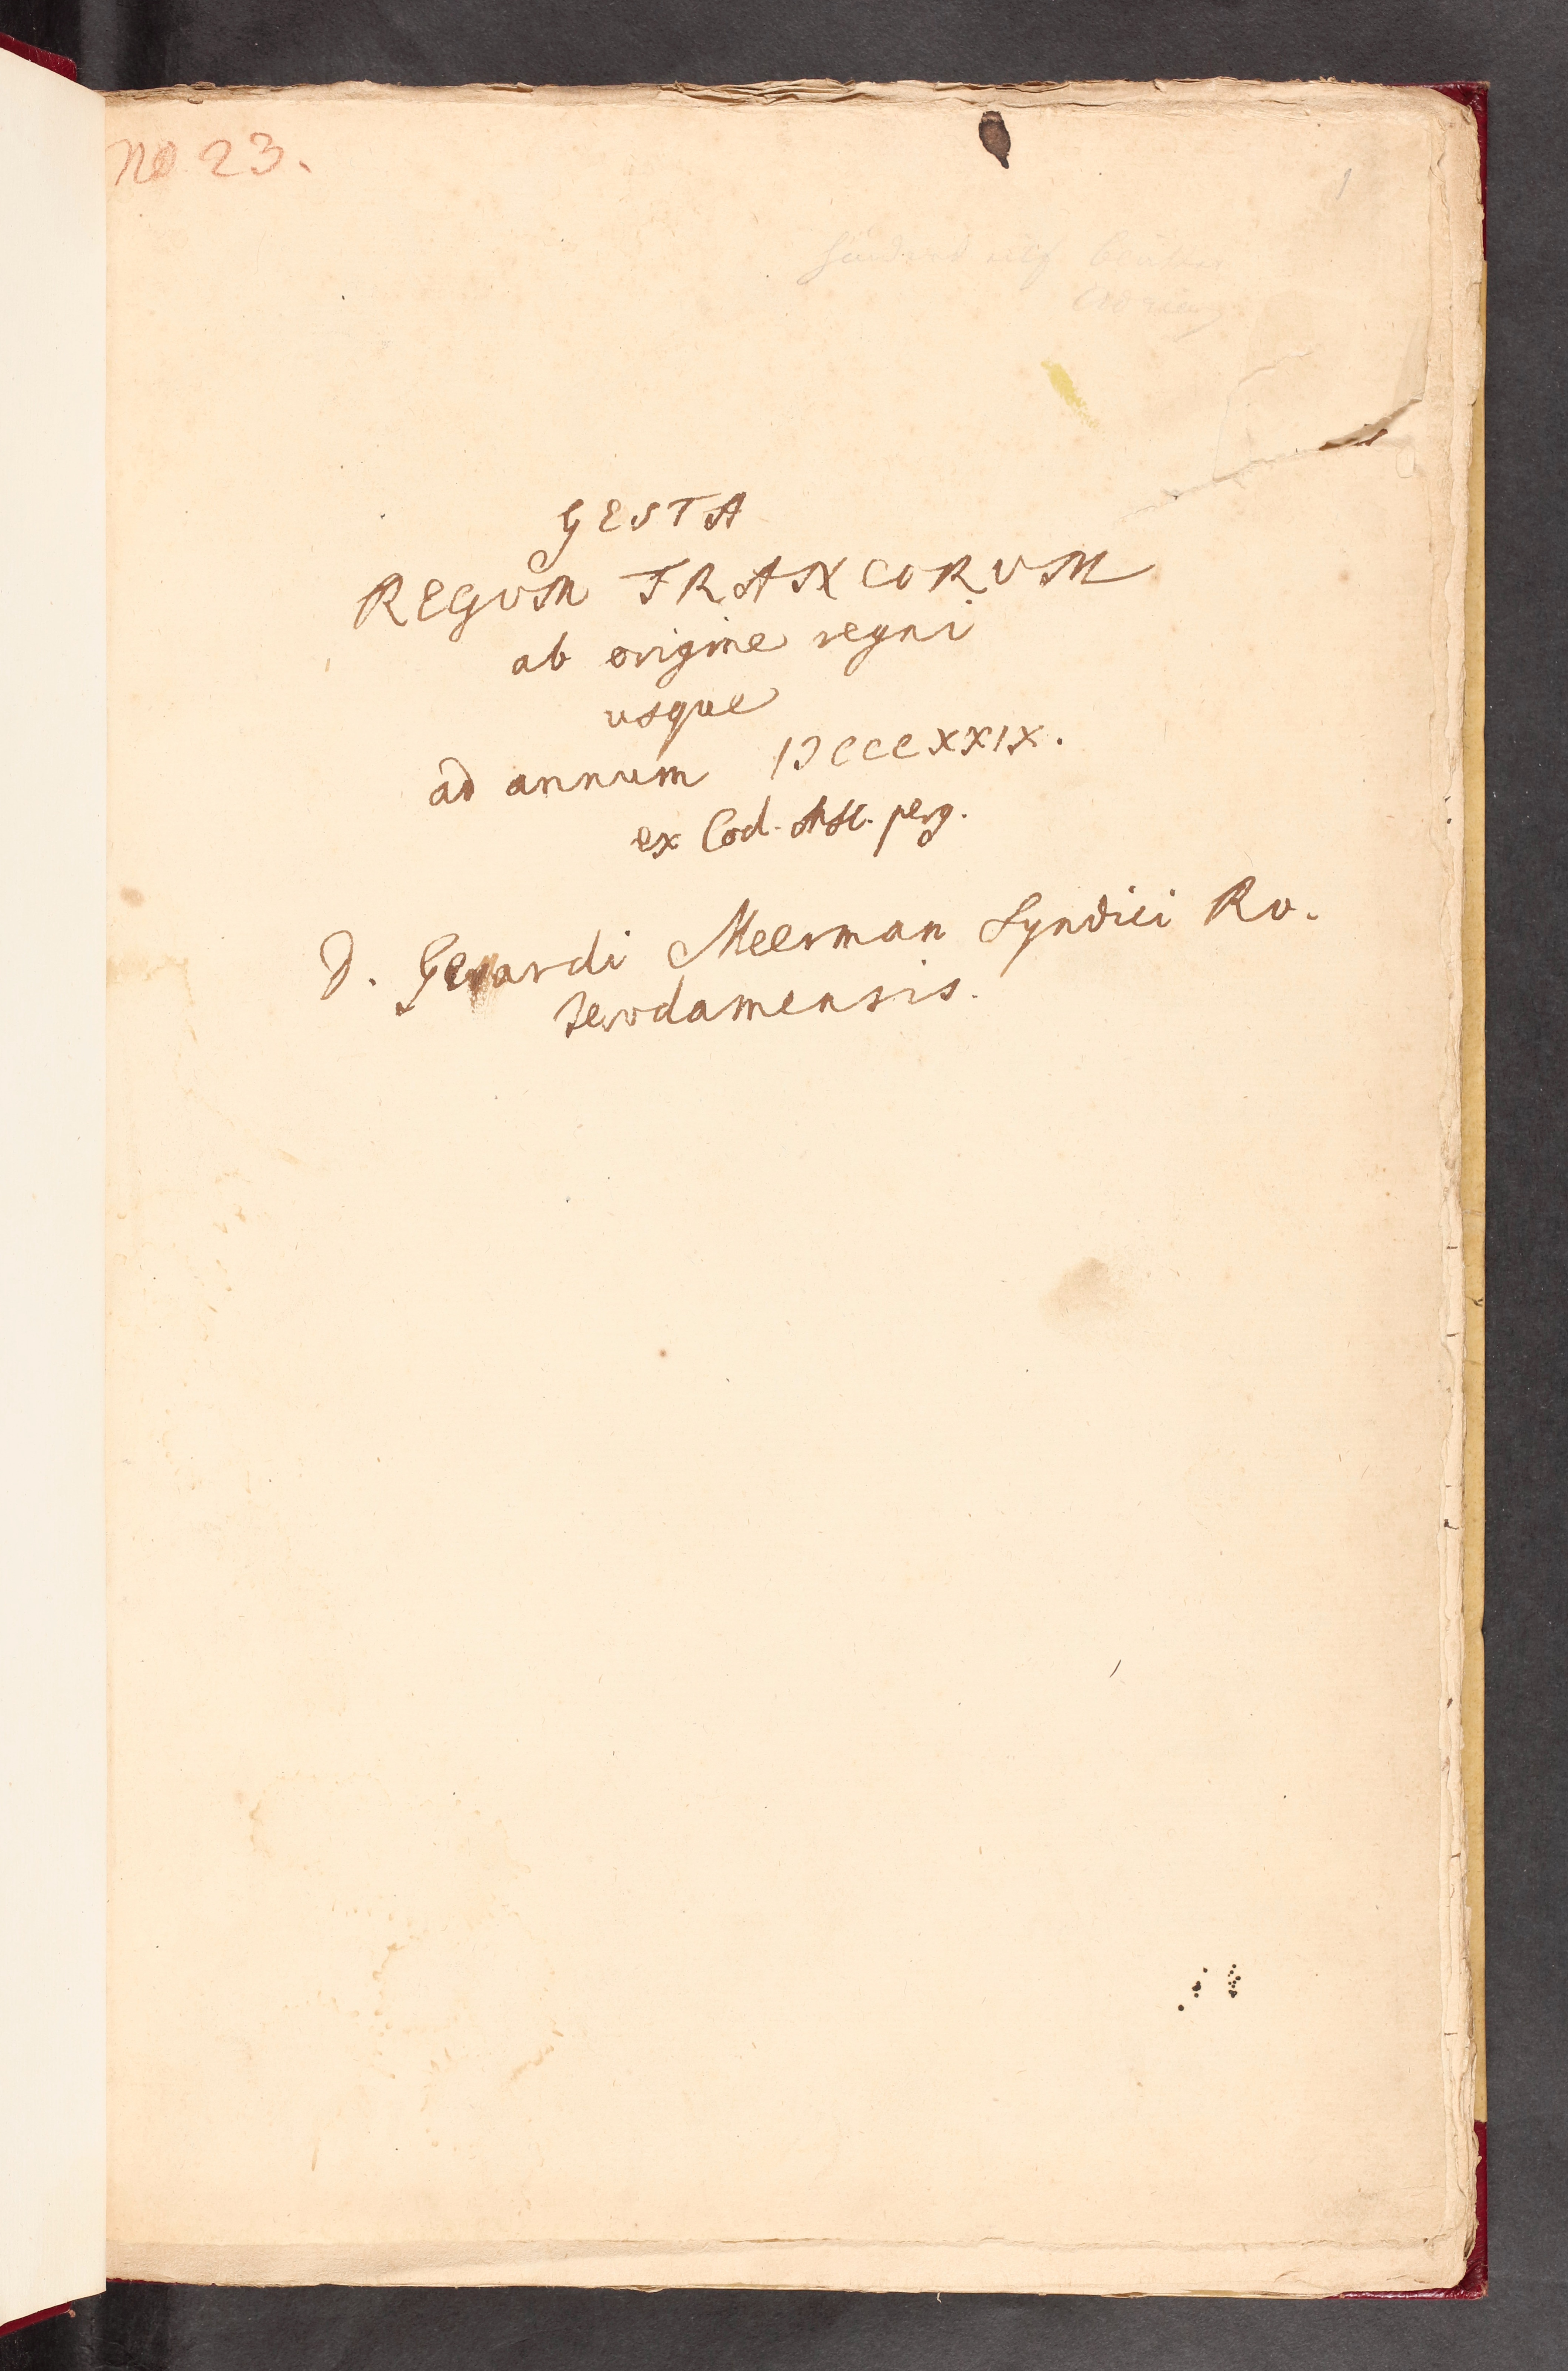 No 23.
1
GESTA
REGUM FRANCORUM
ab origine regni
usque
ad annum IƆCCCXXIX.
ex Cod. MS. perg.
D. Gerardi Meerman Syndici Ro-
terodamensis.